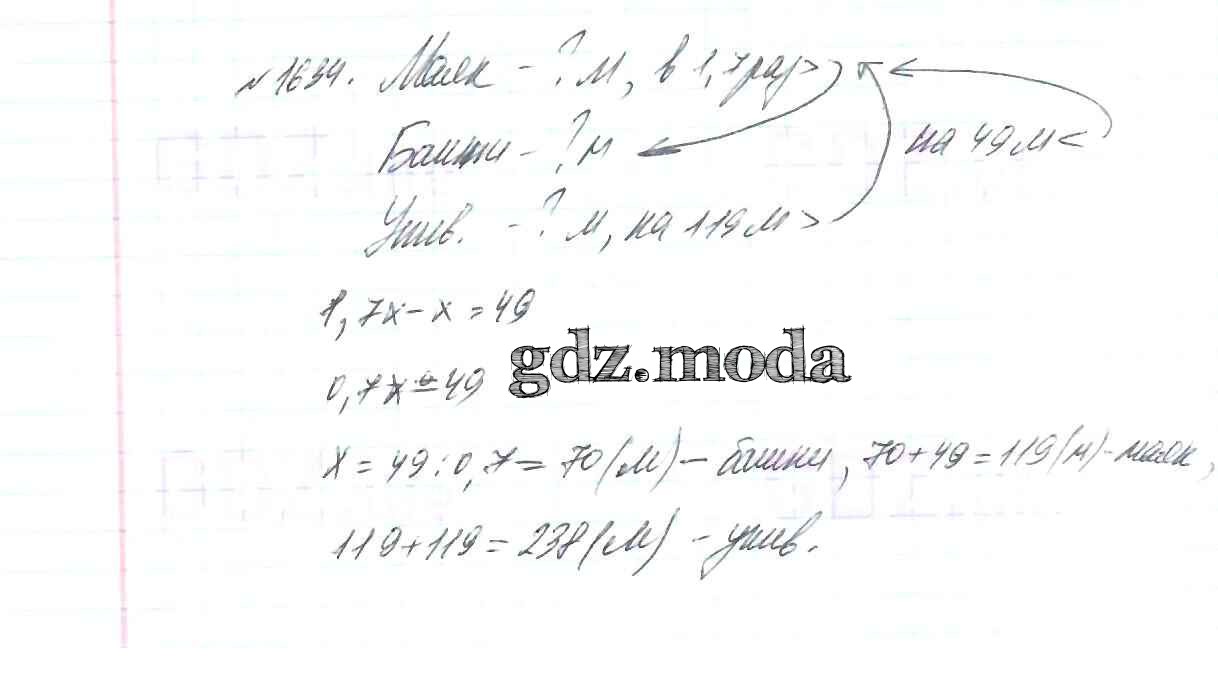 №1634. Маяк - ? м, в 1,7 раз >
Башни - ? м
на 49 м <
Унив. - ? м, на 119 м >
1,7x - x = 49
0,7x = 49
gdz.moda
x = 49 : 0,7 = 70 (м) - башни, 70 + 49 = 119 (м) - маяк,
119 + 119 = 238 (м) - унив.